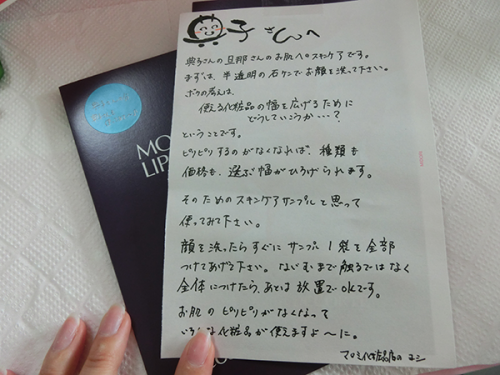 典子さんへ
典子さんの旦那さんのお肌へのスキンケアです。
まずは、半透明の石ケンでお顔を洗って下さい。
ボクの考えは、
使える化粧品の幅を広げるために
どうしていこうか…?
ということです。
ピリピリするのがなくなれば、種類も
価格も、選ぶ幅がひろげられます。
そのためのスキンケアサンプルと思って
使ってみて下さい。
顔を洗ったらすぐに サンプル 1袋を全部
つけてあげて下さい。なじむまで触るではなく
全体につけたら、あとは放置でOKです。
お肌のピリピリがなくなって
いろんな化粧品が使えますよ〜に。
マツミ化粧品店の
MO
LIP